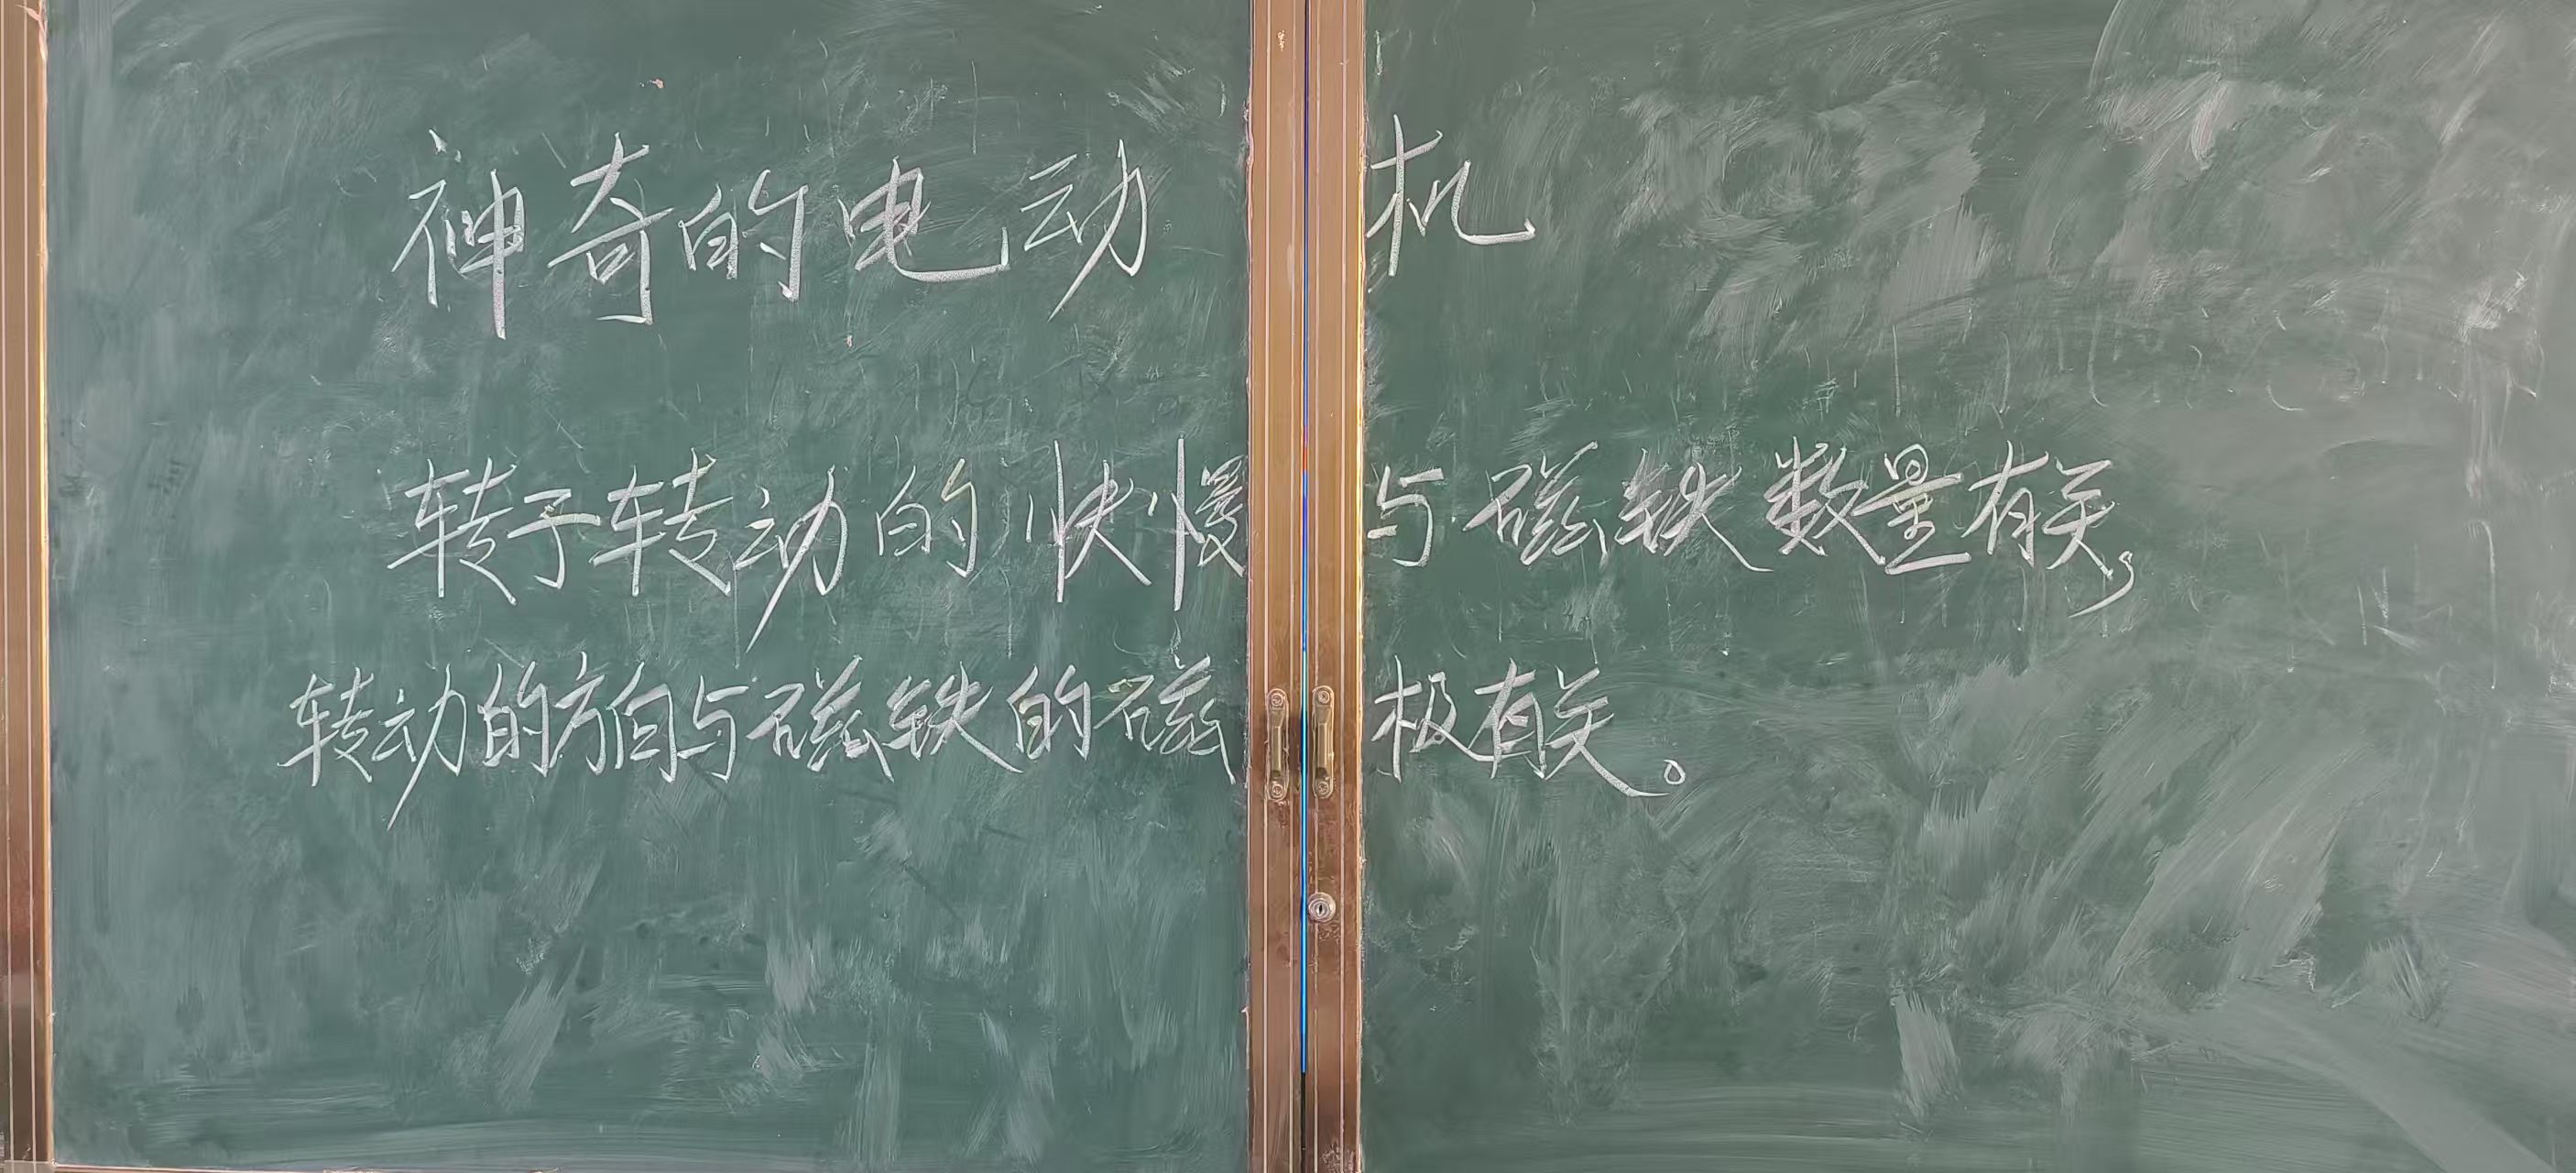 神奇的电动机
转子转动的快慢与磁铁数量有关,
转动的方向与磁铁的磁极有关。